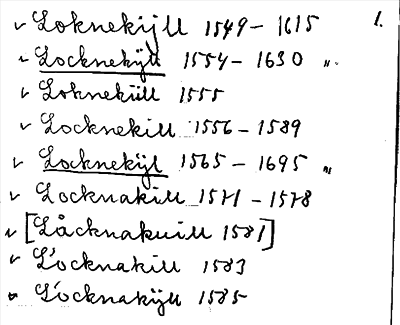 Loknekijll 1549 - 1615 1.
Locknekÿll 1554 - 1630 〃
Loknekiill 1555
Locknekill 1556 - 1589
Locknekÿl 1565 - 1695 〃
Locknakill 1571 - 1578
[Låcknakuill 1581]
Locknakill 1583
Locknakÿll 1585